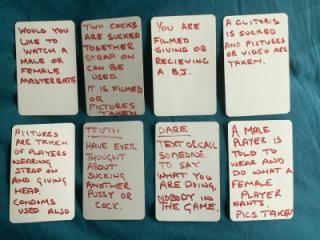 WOULD YOU
LIKE TO
WATCH A
MALE OR
FEMALE
MASTERBATE
TWO COCKS
ARE SUCKED
TOGETHER
STRAP ON
CAN BE
USED.
IT IS FILMED
OR
PICTURES
TAKEN
YOU ARE
FILMED
GIVING OR
RECIEVING
A B.J.
A CLITORIS
IS SUCKED
AND PICTURES
OR VIDEO ARE
TAKEN.
PIITURES
ARE TAKEN
OF PLAYERS
WEARING
STRAP ON
AND GIVING
HEAD.
CONDOMS
USED ALSO
TRUTH
HAVE EVER
THOUGHT
ABOUT
SUCKING
ANOTHER
PUSSY OR
COCK.
DARE
TEXT OR CALL
SOMEONE
TO SAY
WHAT YOU
ARE DOING.
NOBODY IN
THE GAME.
A MALE
PLAYER IS
TOLD TO
WEAR AND
DO WHAT A
FEMALE
PLAYER
WANTS.
PICS TAKEN